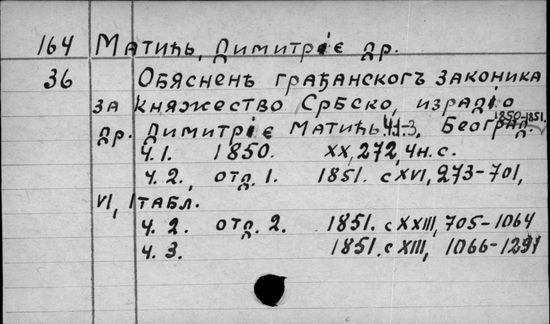 164 Матићь, Димитріє др.
36 Обясненѣ грађанскогъ законика
за княжество Србско, израдіо
др. Димитріє Матићь. Ч.1-3. Београд. 1850-1851.
Ч.1. 1850. XX, 272, 4 н. с.
Ч. 2., отд. 1. 1851. с XVI, 273-701,
VI, 1 табл.
Ч. 2. отд. 2. 1851. с XXIII, 705-1064
Ч. 3. 1851. с XIII, 1066-1291